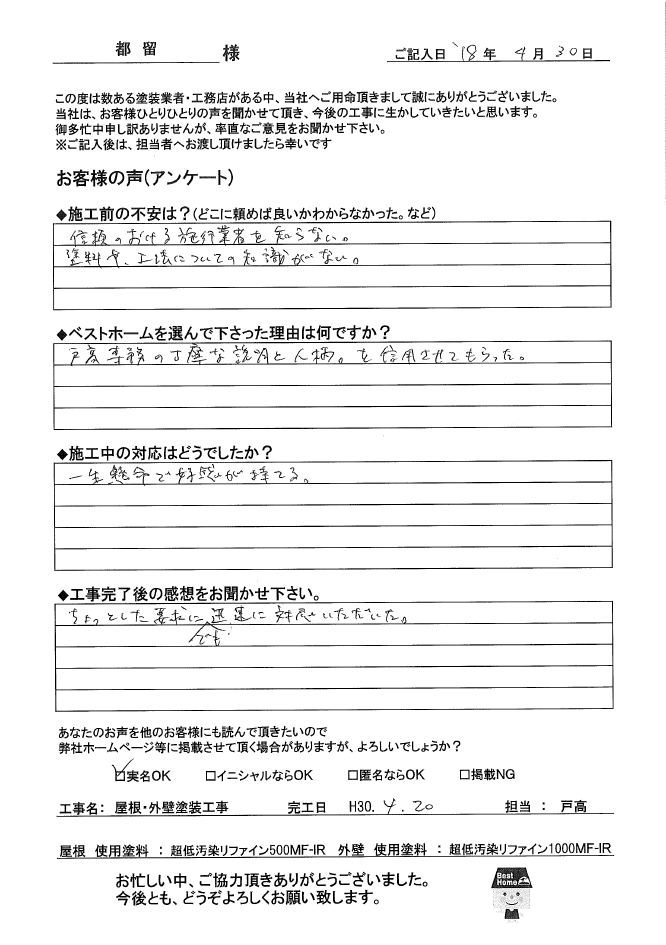 都留 様 ご記入日 '18年 4月 30日
この度は数ある塗装業者・工務店がある中、当社へご用命頂きまして誠にありがとうございました。
当社は、お客様ひとりひとりの声を聞かせて頂き、今後の工事に生かしていきたいと思います。
御多忙中申し訳ありませんが、率直なご意見をお聞かせ下さい。
※ご記入後は、担当者へお渡し頂けましたら幸いです
お客様の声(アンケート)
◆施工前の不安は?(どこに頼めば良いかわからなかった。など)
信頼のおける施行業者を知らない。
塗料や、工法についての知識がない。
◆ベストホームを選んで下さった理由は何ですか?
戸高専務の丁寧な説明と人柄。を信用させてもらった。
◆施工中の対応はどうでしたか?
一生懸命で好感が持てる。
◆工事完了後の感想をお聞かせ下さい。
ちょっとした要求に迅速に対応いただいた。
でも
あなたのお声を他のお客様にも読んで頂きたいので
弊社ホームページ等に掲載させて頂く場合がありますが、よろしいでしょうか?
☑実名OK □イニシャルならOK □匿名ならOK □掲載NG
工事名: 屋根・外壁塗装工事 完工日 H30. 4. 20 担当 : 戸高
屋根 使用塗料 : 超低汚染リファイン500MF-IR 外壁 使用塗料 : 超低汚染リファイン1000MF-IR
お忙しい中、ご協力頂きありがとうございました。
今後とも、どうぞよろしくお願い致します。
Best
Home